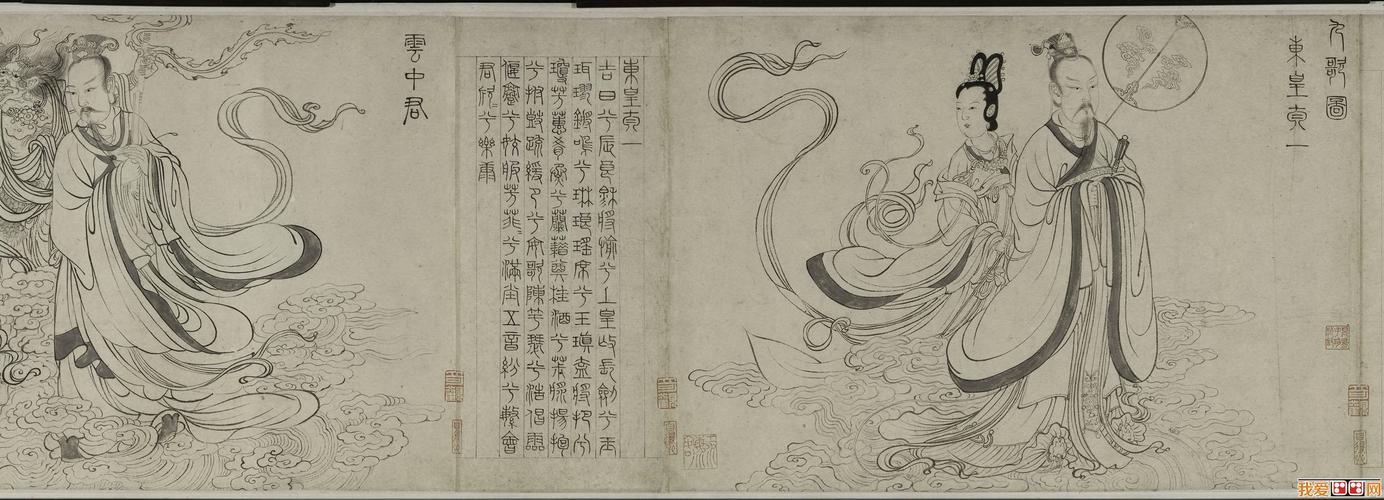 九歌圖
東皇太一
東皇太一
吉日兮辰良穆將愉兮上皇撫長劍兮玉
珥璆鏘鳴兮琳琅瑤席兮玉瑱盍將把兮
瓊芳蕙肴蒸兮蘭藉奠桂酒兮椒漿揚枹
兮拊鼓疏緩節兮安歌陳竽瑟兮浩倡靈
偃蹇兮姣服芳菲〻兮滿堂五音紛兮繁會
君欣〻兮樂康
雲中君
我爱画画网